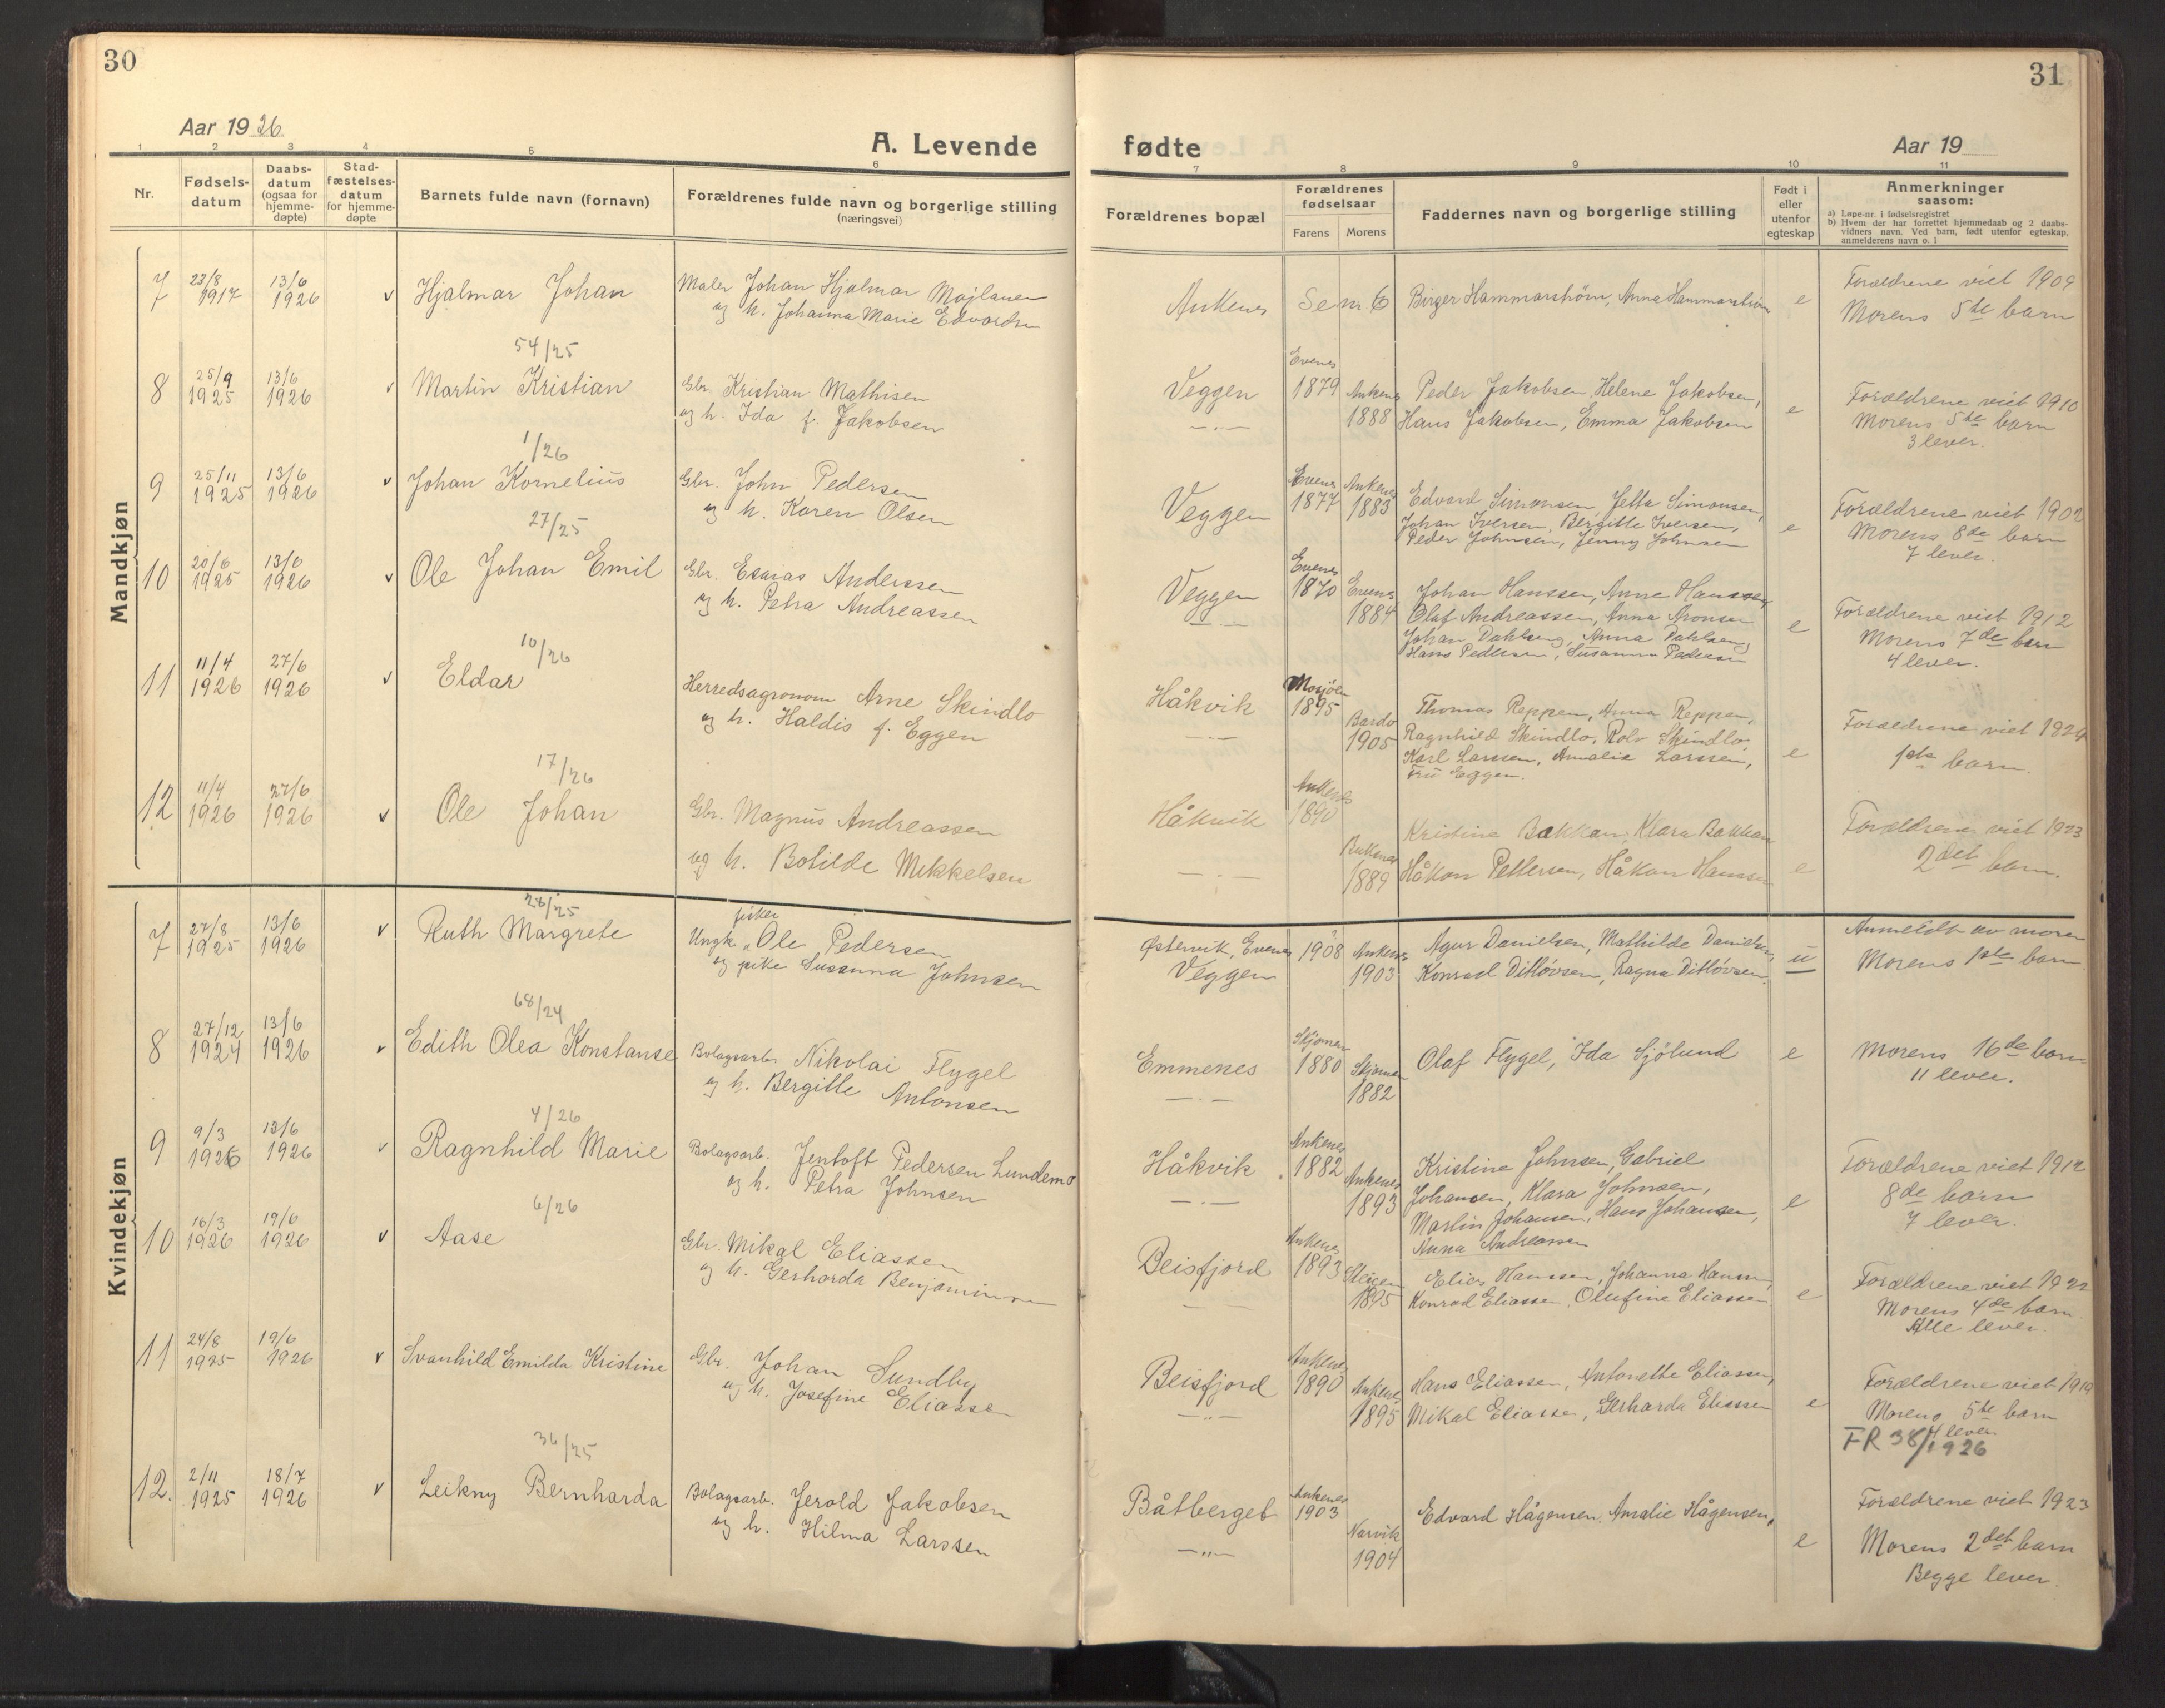 30
Aar 1926
A. Levende
1 2 3 4 5 6
Nr.
Fødsels-
datum
Daabs-
datum
(ogsaa for
hjemme-
døpte)
Stad-
fæstelses-
datum
for hjemme-
døpte
Barnets fulde navn (fornavn)
Forældrenes fulde navn og borgerlige stilling
(næringsvei)
Mandkjøn
7 23/8 1917 13/6 1926 v Hjalmar Johan
Maler Johan Hjalmar Majlaner
og h. Johanna Marie Edvardsen
54/25
8 25/9 1925 13/6 1926 v Martin Kristian
Gbr. Kristian Mathisen
og h. Ida f. Jakobsen
1/26
9 25/11 1925 13/6 1926 v Johan Kornelius
Gbr. John Pedersen
og h. Karen Olsen
27/25
10 20/6 1925 13/6 1926 v Ole Johan Emil
Gbr. Esaias Anderssen
og h. Petra Andreassen
10/26
11 11/4 1926 27/6 1926 v Eldar
Herredsagronom Arne Skindlo
og h. Haldis f. Eggen
17/26
12 11/4 1926 27/6 1926 v Ole Johan
Gbr. Magnus Andreassen
og h. Botilde Mikkelsen
Kvindekjøn
26/25
7 27/8 1925 13/6 1926 v Ruth Margrete
fisker
Ungk. Ole Pedersen
og pike Susanna Johnsen
68/24
8 27/12 1924 13/6 1926 v Edith Olea Konstanse
Bolagsarb. Nikolai Flygel
og h. Bergitte Antonsen
4/26
9 9/3 1926 13/6 1926 v Ragnhild Marie
Bolagsarb. Jentoft Pedersen Lundemo
og h. Petra Johnsen
6/26
10 16/3 1926 19/6 1926 v Aase
Gbr. Mikal Eliassen
og h. Gerharda Benjaminsen
11 24/8 1925 19/6 1926 v Svanhild Emilda Kristine
Gbr. Johan Sundby
og h. Josefine Eliassen
36/25
12. 2/11 1925 18/7 1926 v Leikny Bernharda
Bolagsarb. Jerold Jakobsen
og h. Hilma Larssen
31
fødte
Aar 19
7 8 9 10 11
Forældrenes bopæl
Forældrenes
fødselsaar
Farens Morens
Faddernes navn og borgerlige stilling
Født i
eller
utenfor
egteskap
Anmerkninger
saasom:
a) Løpe-nr. i fødselsregistret
b) Hvem der har forrettet hjemmedaab og 2 daabs-
vidners navn. Ved barn, født utenfor egteskap,
anmelderens navn o. l
Ankenes Se nr. 6
Birger Hammarstrøm, Anna Hammarstrøm
e
Forældrene viet 1909
Morens 5te barn
Veggen
Evenes 1879
Ankenes 1888
Peder Jakobsen, Helene Jakobsen,
Hans Jakobsen, Emma Jakobsen
e
Forældrene viet 1910
Morens 5te barn
3 lever.
Veggen
Evenes 1877
Ankenes 1883
Edvard Simonsen, Jetta Simonsen,
Johan Iversen, Bergitte Iversen,
Peder Johnsen, Jenny Johnsen
e
Forældrene viet 1902
Morens 8de barn
7 lever.
Veggen
Evenes 1870
Evenes 1884
Johan Hanssen, Anne Hanssen,
Olaf Andreassen, Anna Aronsen
Johan Dahlberg, Anna Dahlberg
Hans Pedersen, Susanna Pedersen
e
Forældrene viet 1912
Morens 7de barn
4 lever.
Håkvik
Mosjøen 1895
Bardo 1905
Thomas Reppen, Anna Reppen,
Ragnhild Skindlo, Rolv Skindlo,
Karl Larssen, Amalie Larssen,
Fru Eggen.
e
Forældrene viet 1924
1ste barn.
Håkvik
Ankenes 1890
1889
Kristine Bakkan, Klara Bakkan
Håkon Pettersen, Håkon Hanssen
e
Forældrene viet 1923
2det barn.
Østervik, Evenes
Veggen
1908
Ankenes 1903
Agur Danielsen, Mathilde Danielsen,
Konrad Ditløvsen, Ragna Ditløvsen.
u
Anmeldt av moren
Morens 1ste barn
Emmenes
Skjomen 1880
Skjomen 1882
Olaf Flygel, Ida Sjölund
e
Morens 16de barn
11 lever.
Håkvik
Ankenes 1882
Ankenes 1893
Kristine Johnsen, Gabriel
Johansen, Klara Johnsen,
Martin Johansen, Hans Johansen,
Anna Andreassen
e
Forældrene viet 1912
8de barn
7 lever.
Beisfjord
Ankenes 1893
Steigen 1895
Elias Hanssen, Johanna Hanssen,
Konrad Eliassen, Olufine Eliassen
e
Forældrene viet 1922
Morens 4de barn
Alle lever.
Beisfjord
Ankenes 1890
Ankenes 1895
Hans Eliassen, Antonette Eliassen,
Mikal Eliassen, Gerharda Eliassen
e
Forældrene viet 1919
Morens 5te barn
4 lever.
FR 38/1926
Båtberget
Ankenes 1903
Narvik 1904
Edvard Hågensen, Amalie Hågensen,
e
Forældrene viet 1923
Morens 2det barn
Begge lever.